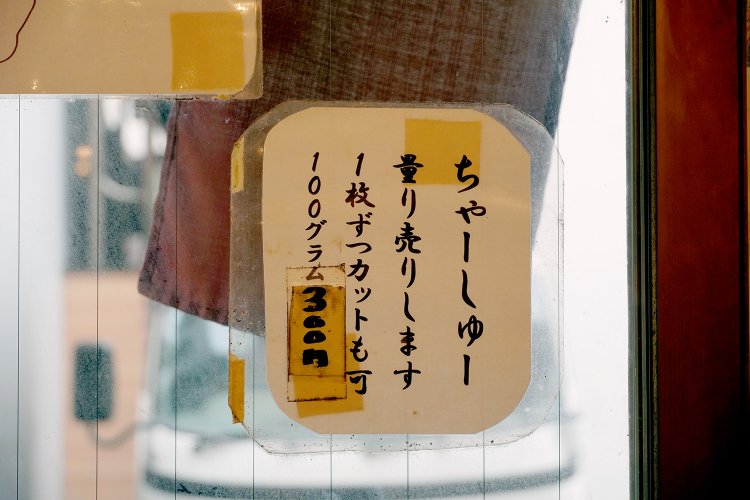 ちゃーしゅー
量り売りします
1枚ずつカットも可
100グラム300円